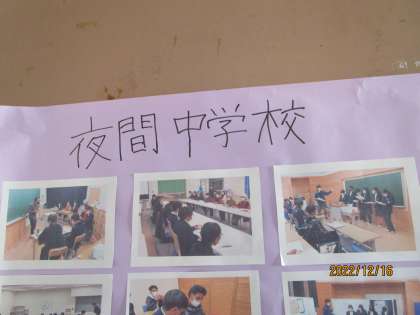 夜間中学校
2022/12/16